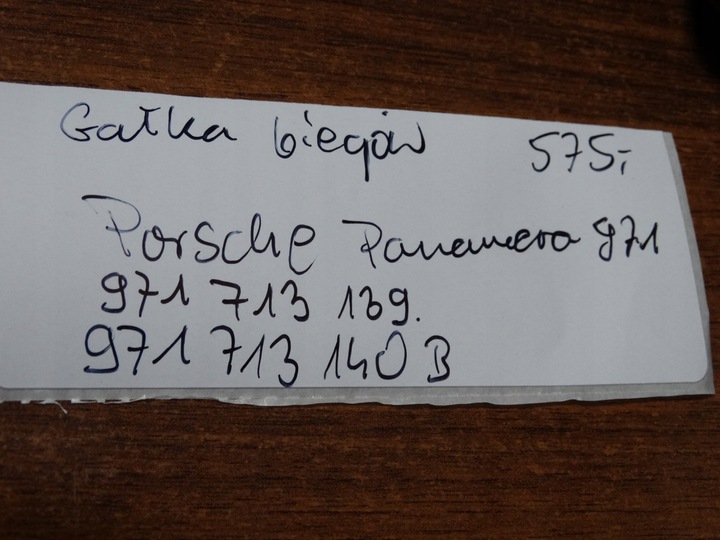 Gałka biegów 575,-
Porsche Panamera 971
971 713 139.
971 713 140 B